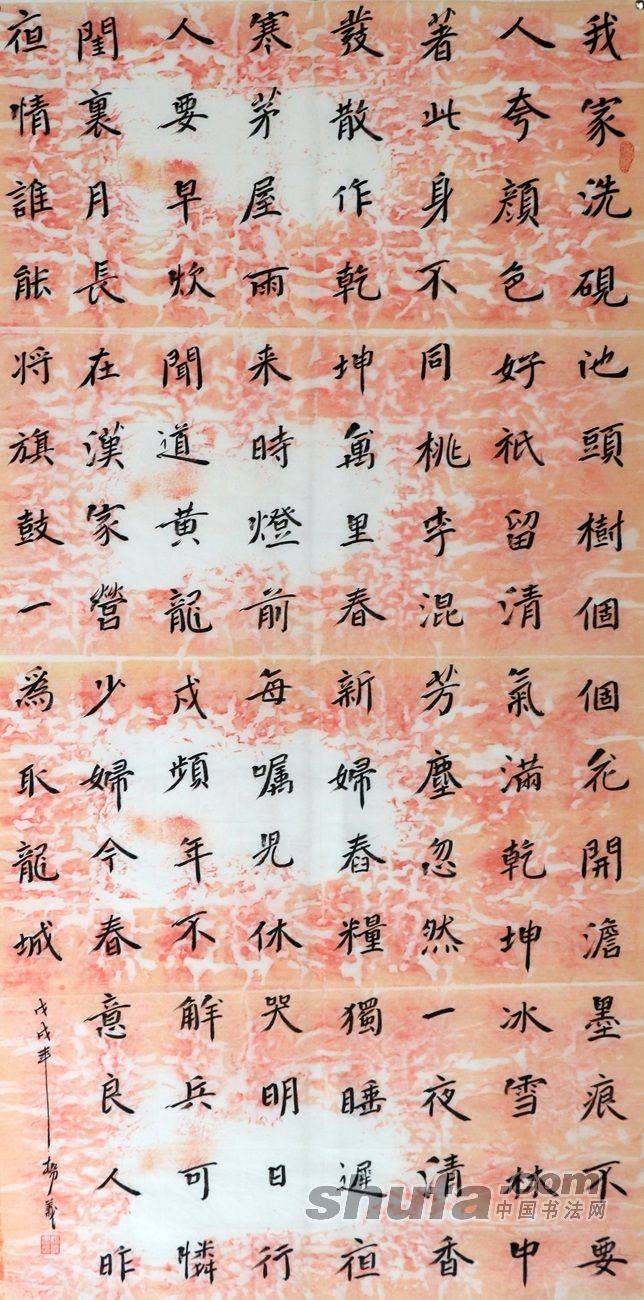 我家洗硯池頭樹個個花開澹墨痕不要
人夸顔色好祇留清氣滿乾坤冰雪林中
著此身不同桃李混芳塵忽然一夜清香
發散作乾坤萬里春新婦舂糧獨睡遲夜
寒茅屋雨来時燈前每嘱児休哭明日行
人要早炊聞道黄龍戍頻年不解兵可憐
閨裏月長在漢家營少婦今春意良人昨
夜情誰能将旗鼓一為取龍城
戊戌年
shufa.com
中国书法网